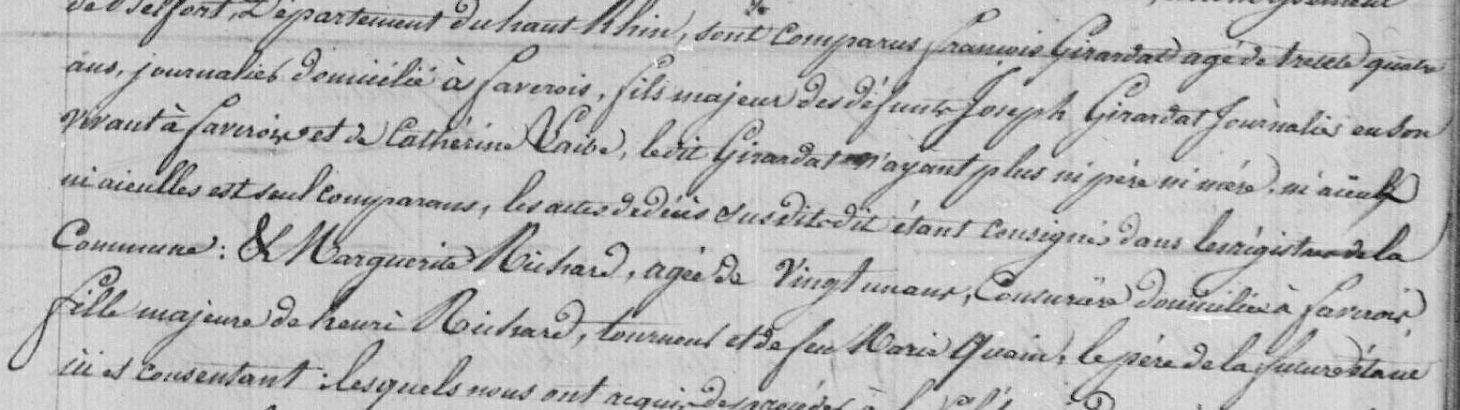 de Belfort, Département du haut Rhin, sont comparus françois Girardat agé de trente quatre
ans, journalier domicilié à faverois, fils majeur des défunts Joseph Girardat Journalier en son
vivant à faverois et de Catherine Laibe, ledit Girardat n'ayant plus ni père ni mère, ni aïeuls
ni aieulles est seul comparans, les actes de décès susdits dit étant consignés dans les régistres de la
Commune : & Marguerite Richard, agée de vingt un ans, Couturière domiciliée à faverois,
fille majeure de henri Richard, tourneur et de feu Marie Quain, le père de la future étant
ici et consentant : lesquels nous ont requis de procéder à